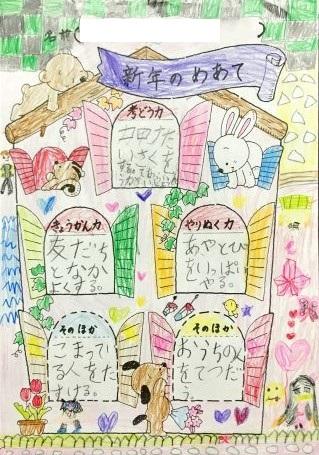 名前
新年のめあて
考どう力
コロナた
いさくを
する。
きょうかん力
友だち
となか
よくする。
やりぬく力
あやとび
をいっぱい
やる。
そのほか
こまってい
る人をた
すける。
そのほか
おうちの人
をてつだ
う。